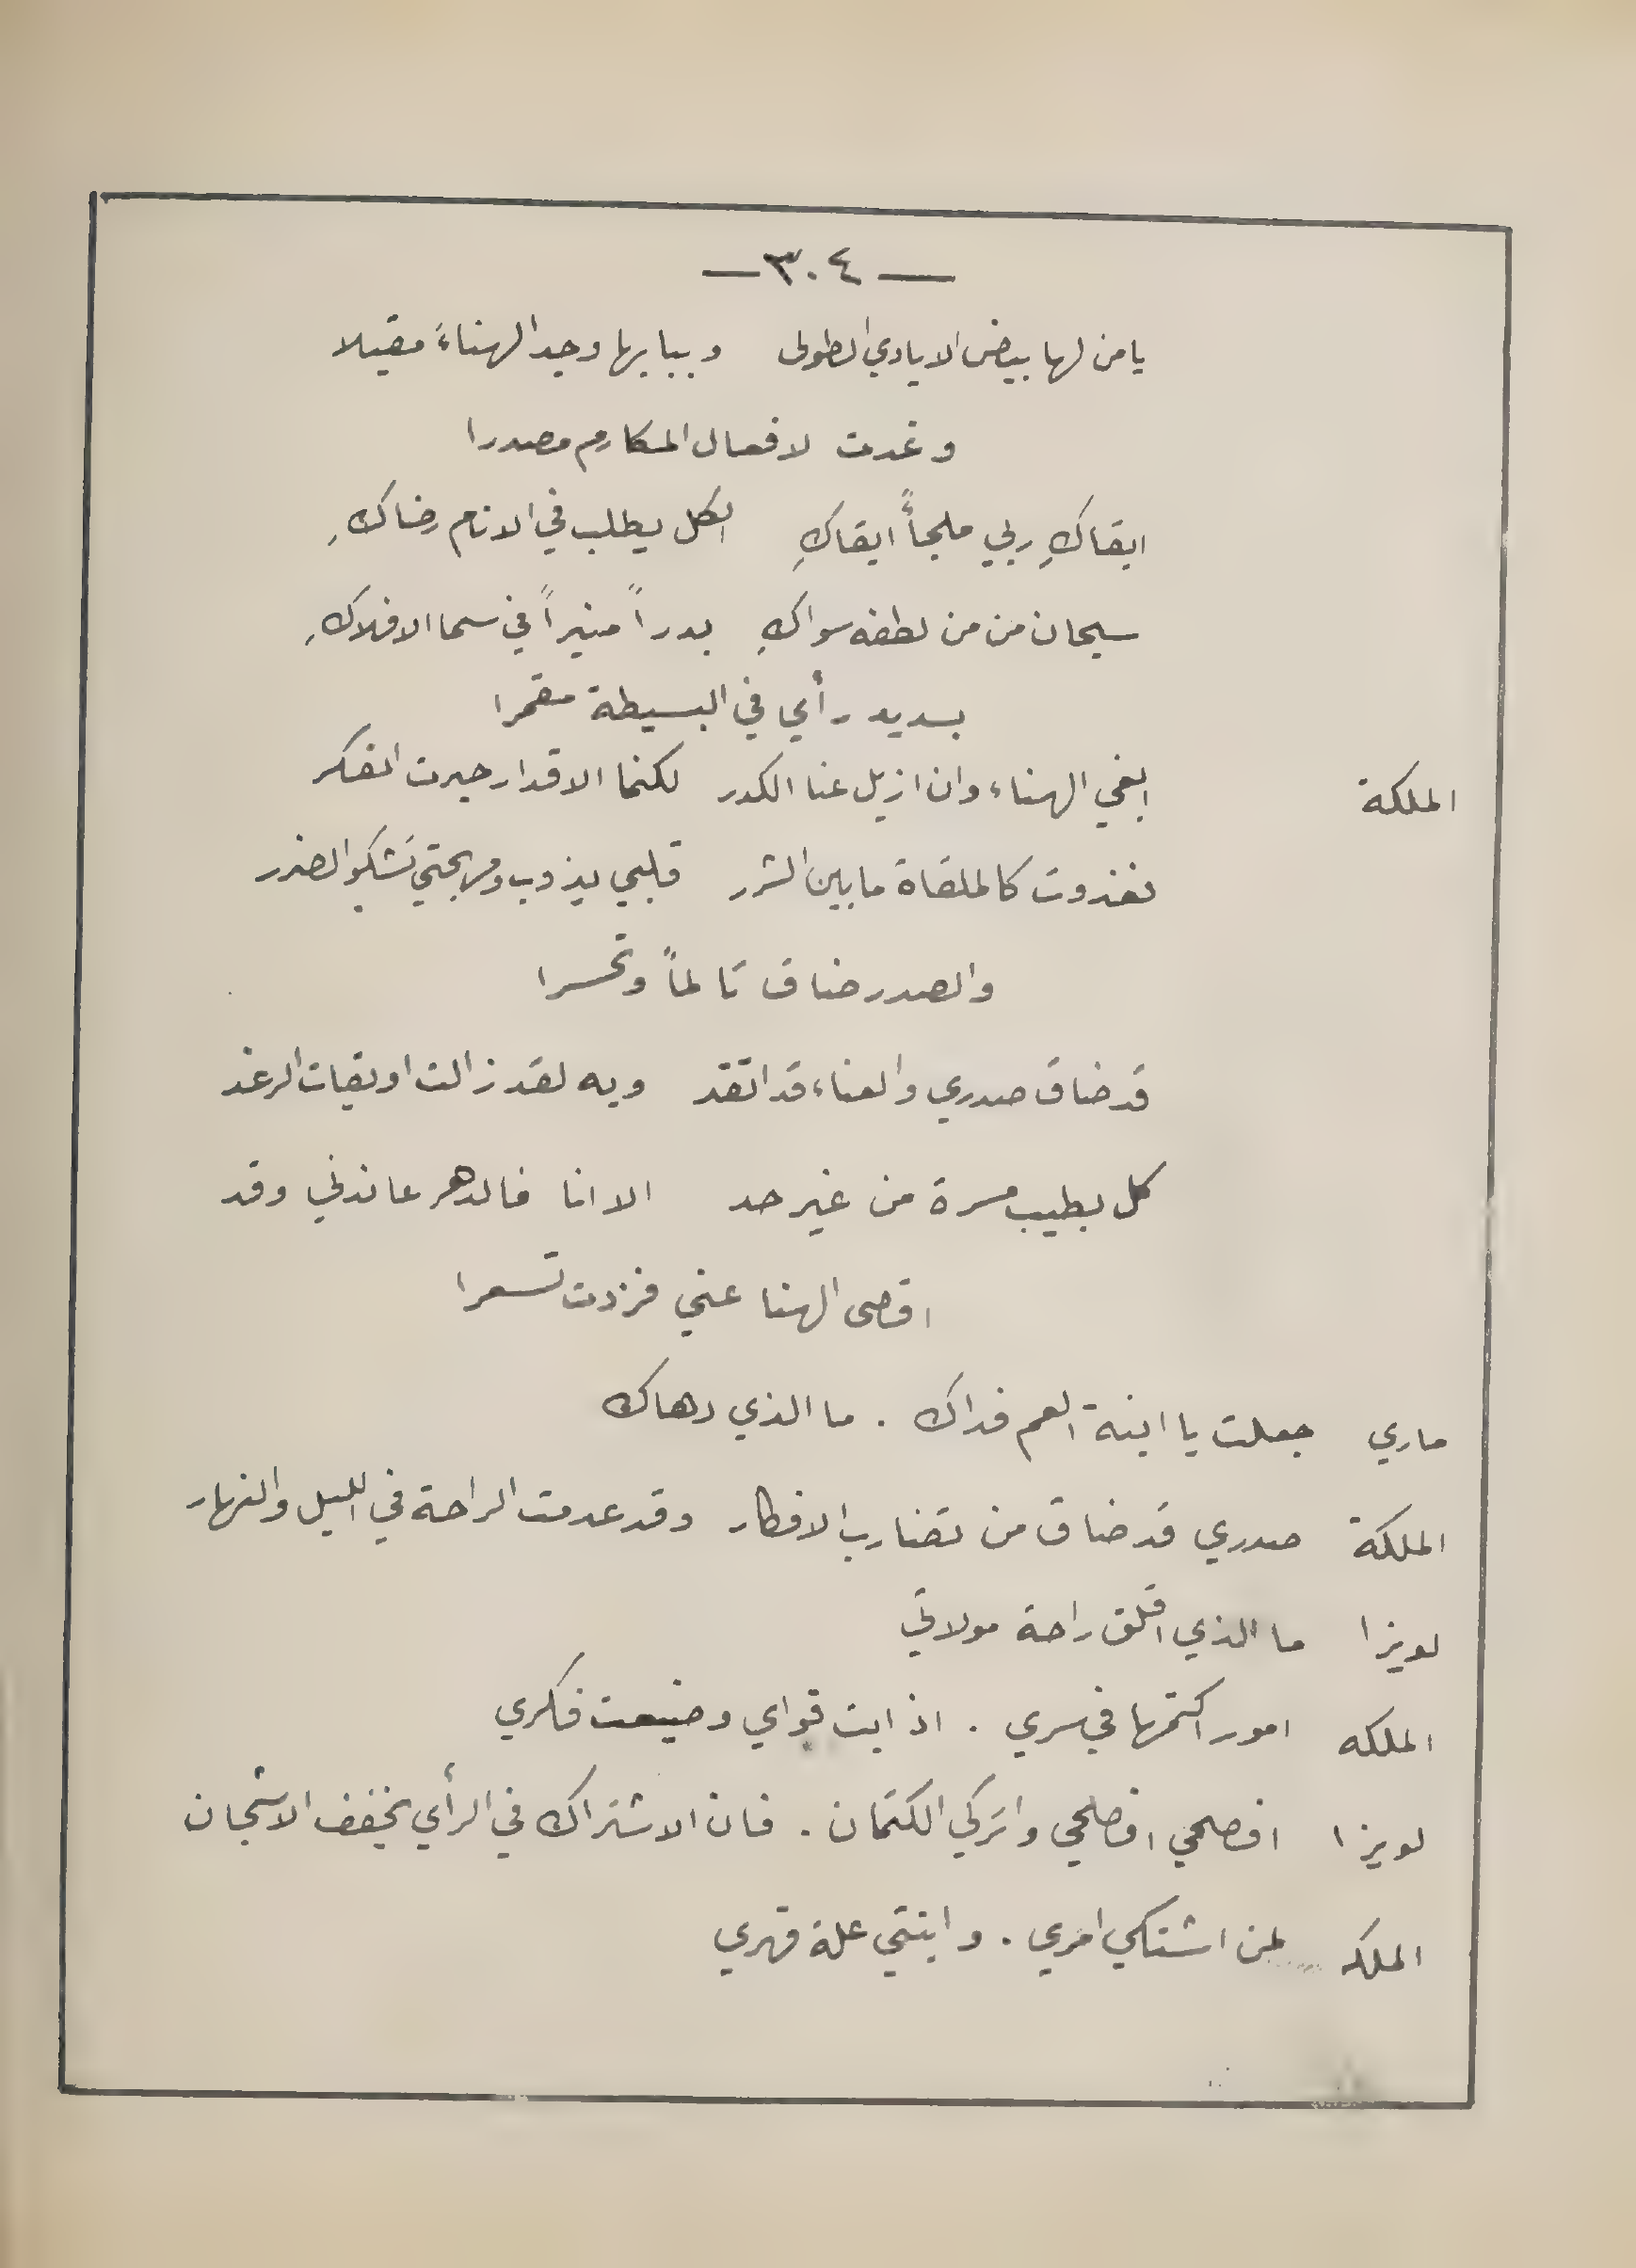 — ٣٠٤ —
يا من لها بيض الايادي الطولى وببابها وجد الهناءَ مقيلا
وغدت لافعال المكارم مصدرا
ابقاكِ ربي ملجأً ابقاكِ الكل يطلب في الانام رضاكِ
سبحان من من لطفه سواكِ بدراً منيراً في سما الافلاكِ
بسديد رأي في البسيطة مقمرا
الملكة ابغي الهناء وان ازيل عنا الكدر لكنما الاقدار حيرت الفكر
فغدوت كالملقاة ما بين الشرر قلبي يذوب ومهجتي تشكو الضرر
والصدر ضاق تالماً وتحسرا
قد ضاق صدري والعناء قد اتقد وبه لقد زالت اويقات الرغد
كل بطيب مسرة من غير حد الا انا فالدهر عاندني وقد
اقصى الهنا عني فزدت تسعرا
ماري جعلت يا ابنة العم فداك . ما الذي دهاك
الملكة صدري قد ضاق من تضارب الافكار وقد عدمت الراحة في الليل والنهار
لويزا ما الذي اقلق راحة مولاتي
الملكه امور اكتمها في سري . اذابت قواي وضيعت فكري
لويزا افصحي افصحي واتركي الكتمان . فان الاشتراك في الرأي يخفف الاشجان
الملكه لمن اشتكي امري . وابنتي علة قهري